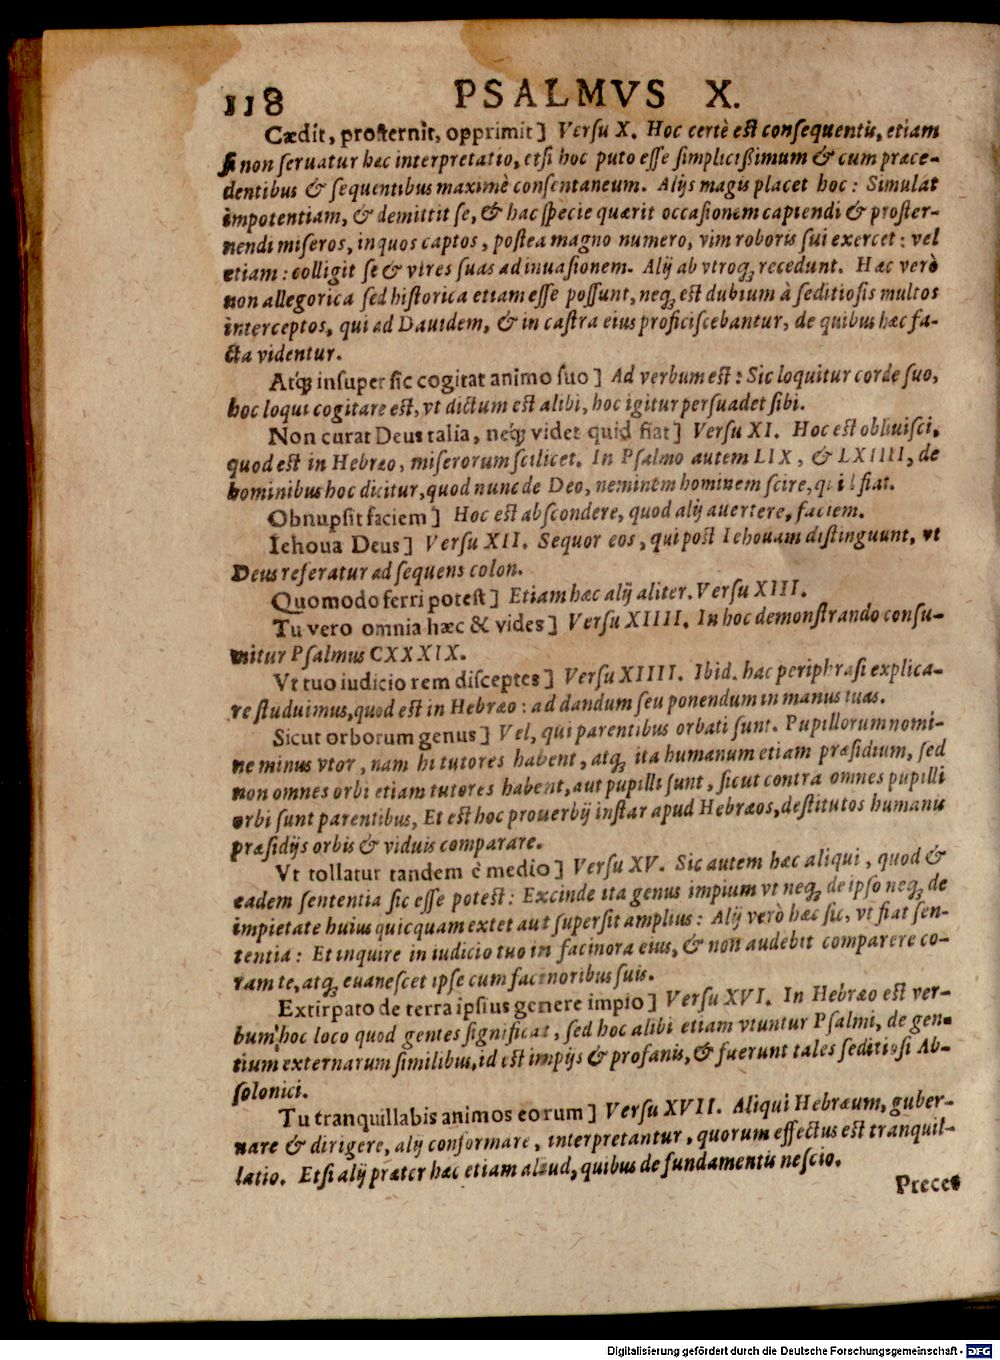 118 PSALMVS X.
Cædit, prosternit, opprimit] Versu X. Hoc certè est consequentis, etiam
si non seruatur hæc interpretatio, etsi hoc puto esse simplicißimum & cum præce-
dentibus & sequentibus maximè consentaneum. Alijs magis placet hoc: Simulat
impotentiam, & demittit se, & hac specie quærit occasionem capiendi & proster-
nendi miseros, in quos captos, postea magno numero, vim roboris sui exercet: vel
etiam: colligit se & vires suas ad inuasionem. Alij ab vtroq; recedunt. Hæc verò
non allegorica sed historica etiam esse possunt, neq; est dubium à seditiosis multos
interceptos, qui ad Dauidem, & in castra eius proficiscebantur, de quibus hæc fa-
cta videntur.
Atq; insuper sic cogitat animo suo] Ad verbum est: Sic loquitur corde suo,
hoc loqui cogitare est, vt dictum est alibi, hoc igitur persuadet sibi.
Non curat Deus talia, neq; videt quid fiat] Versu XI. Hoc est obliuisci,
quod est in Hebræo, miserorum scilicet. In Psalmo autem LIX, & LXIIII, de
hominibus hoc dicitur, quod nunc de Deo, neminem hominem scire, fiat.
Obnupsit faciem] Hoc est abscondere, quod alij auertere, faciem.
Iehoua Deus] Versu XII. Sequor eos, qui post Iehouam distinguunt, vt
Deus referatur ad sequens colon.
Quomodo ferri potest] Etiam hæc alij aliter. Versu XIII.
Tu vero omnia hæc & vides] Versu XIIII. In hoc demonstrando consu-
mitur Psalmus CXXXIX.
Vt tuo iudicio rem disceptes] Versu XIIII. Ibid. hac periphrasi explica-
re studuimus, quod est in Hebræo: ad dandum seu ponendum in manus tuas.
Sicut orborum genus] Vel, qui parentibus orbati sunt. Pupillorum nomi-
ne minus vtor, nam hi tutores habent, atq; ita humanum etiam præsidium, sed
non omnes orbi etiam tutores habent, aut pupilli sunt, sicut contra omnes pupilli
orbi sunt parentibus, Et est hoc prouerbij instar apud Hebræos, destitutos humanis
præsidijs orbis & viduis comparare.
Vt tollatur tandem è medio] Versu XV. Sic autem hæc aliqui, quod &
eadem sententia sic esse potest: Excinde ita genus impium vt neq; de ipso neq; de
impietate huius quicquam extet aut supersit amplius: Alij verò hæc sic, vt fiat sen-
tentia: Et inquire in iudicio tuo in facinora eius, & non audebit comparere co-
ram te, atq; euanescet ipse cum facinoribus suis.
Extirpato de terra ipsius genere impio] Versu XVI. In Hebræo est ver-
bum hoc loco quod gentes significat, sed hoc alibi etiam vtuntur Psalmi, de gen-
tium externarum similibus, id est impijs & profanis, & fuerunt tales seditiosi Ab-
solonici.
Tu tranquillabis animos eorum] Versu XVII. Aliqui Hebræum, guber-
nare & dirigere, alij conformare, interpretantur, quorum effectus est tranquil-
latio. Etsi alij præter hæc etiam aliud, quibus de fundamentis nescio.
Preces
Digitalisierung gefördert durch die Deutsche Forschungsgemeinschaft - DFG